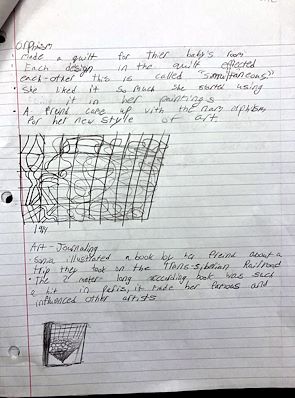 Orphism
• made a quilt for thier baby's room
• Each design in the quilt effected
each-other this is called "Simultaneous"
• She liked it so much she started using
it in her paintings
• A friend came up with the name orphism
for her new style of art
Art-Journaling
• Sonia illustrated a book by her freind about a
trip they took on the Trans-Siberian Railroad
• The 2 meter long according book was such
a hit in Paris, it made her famous and
influenced other artists